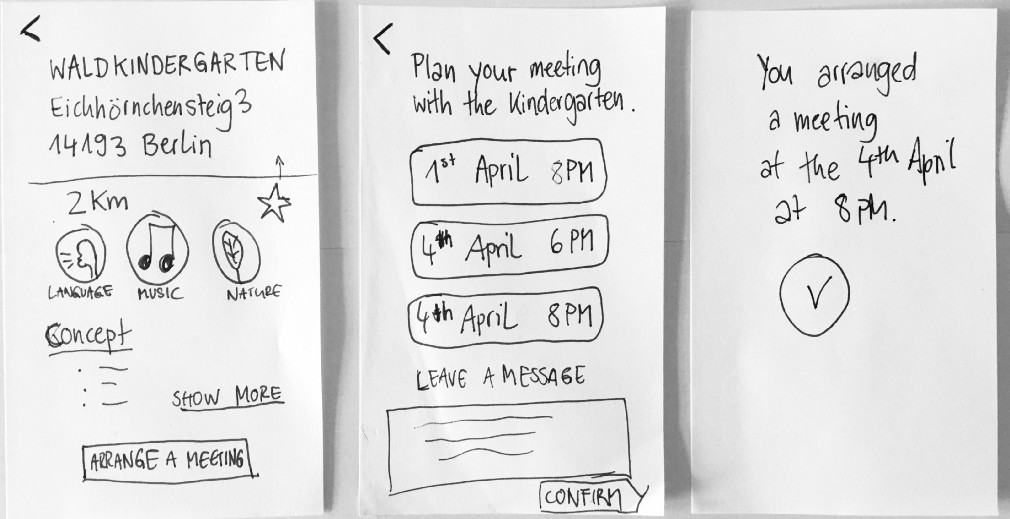 <
WALDKINDERGARTEN
Eichhörnchensteig 3
14193 Berlin
2 Km
LANGUAGE MUSIC NATURE
Concept
SHOW MORE
ARRANGE A MEETING
<
Plan your meeting
with the Kindergarten.
1st April 8PM
4th April 6PM
4th April 8PM
LEAVE A MESSAGE
CONFIRM
You arranged
a meeting
at the 4th April
at 8PM.